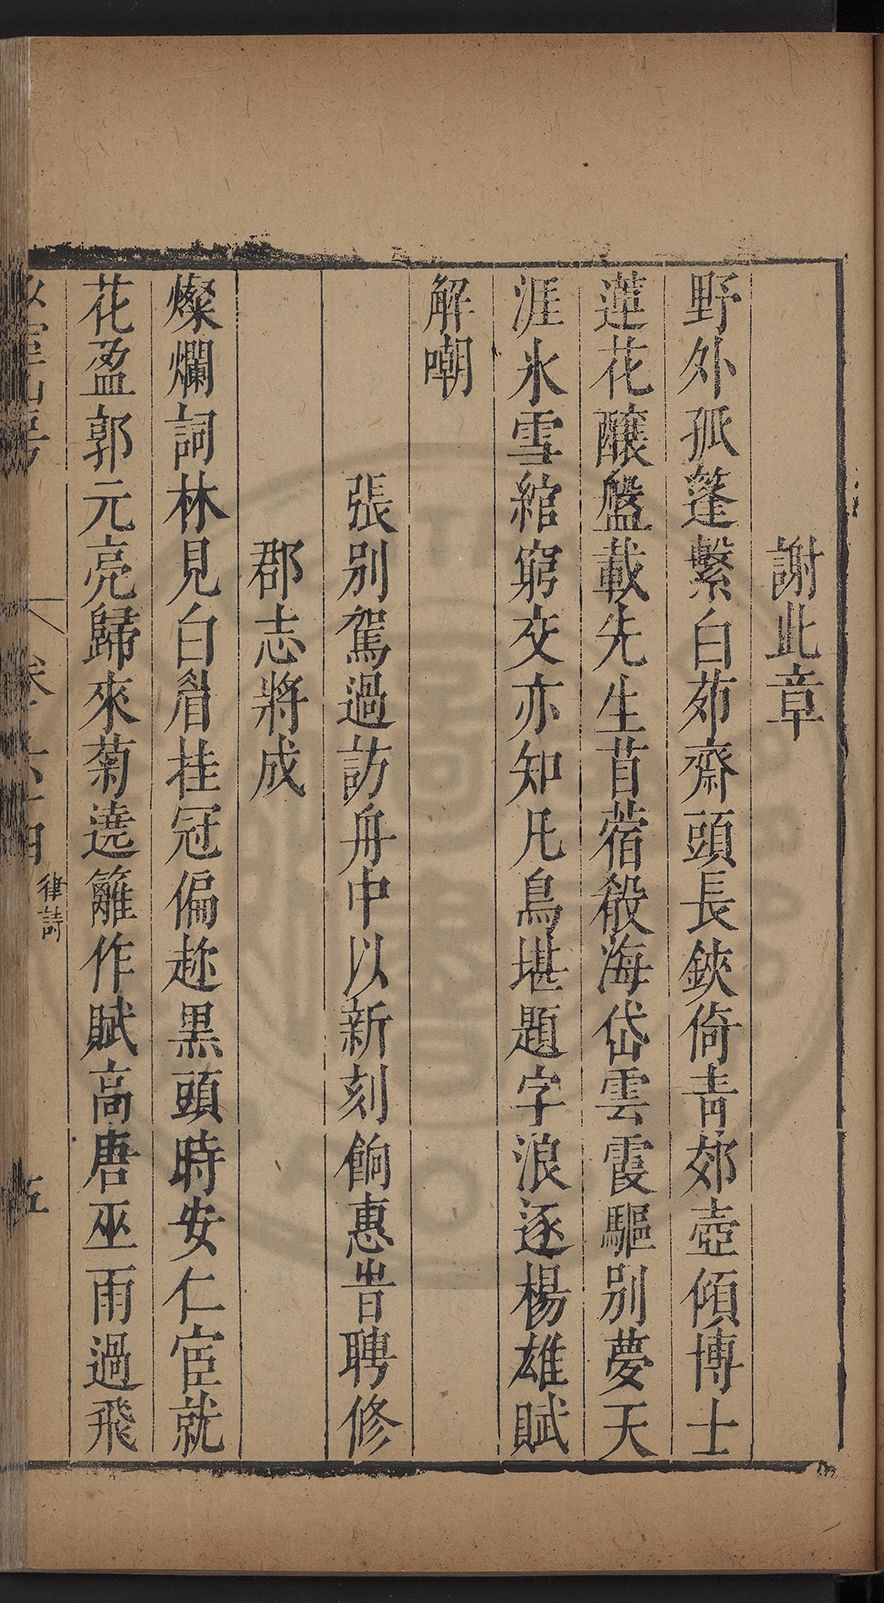 謝此章
野外孤篷繫白茆齋頭長鋏倚青郊壺傾博士
蓮花釀盤載先生苜蓿殽海岱雲霞驅別夢天
涯氷雪綰窮交亦知凡鳥堪題字浪逐楊雄賦
解嘲
張別駕過訪舟中以新刻餉惠昔聘修
郡志將成
燦爛詞林見白眉挂冠偏趂黑頭時安仁宦就
花盈郭元亮歸來菊遶籬作賦高唐巫雨過飛
律詩
五